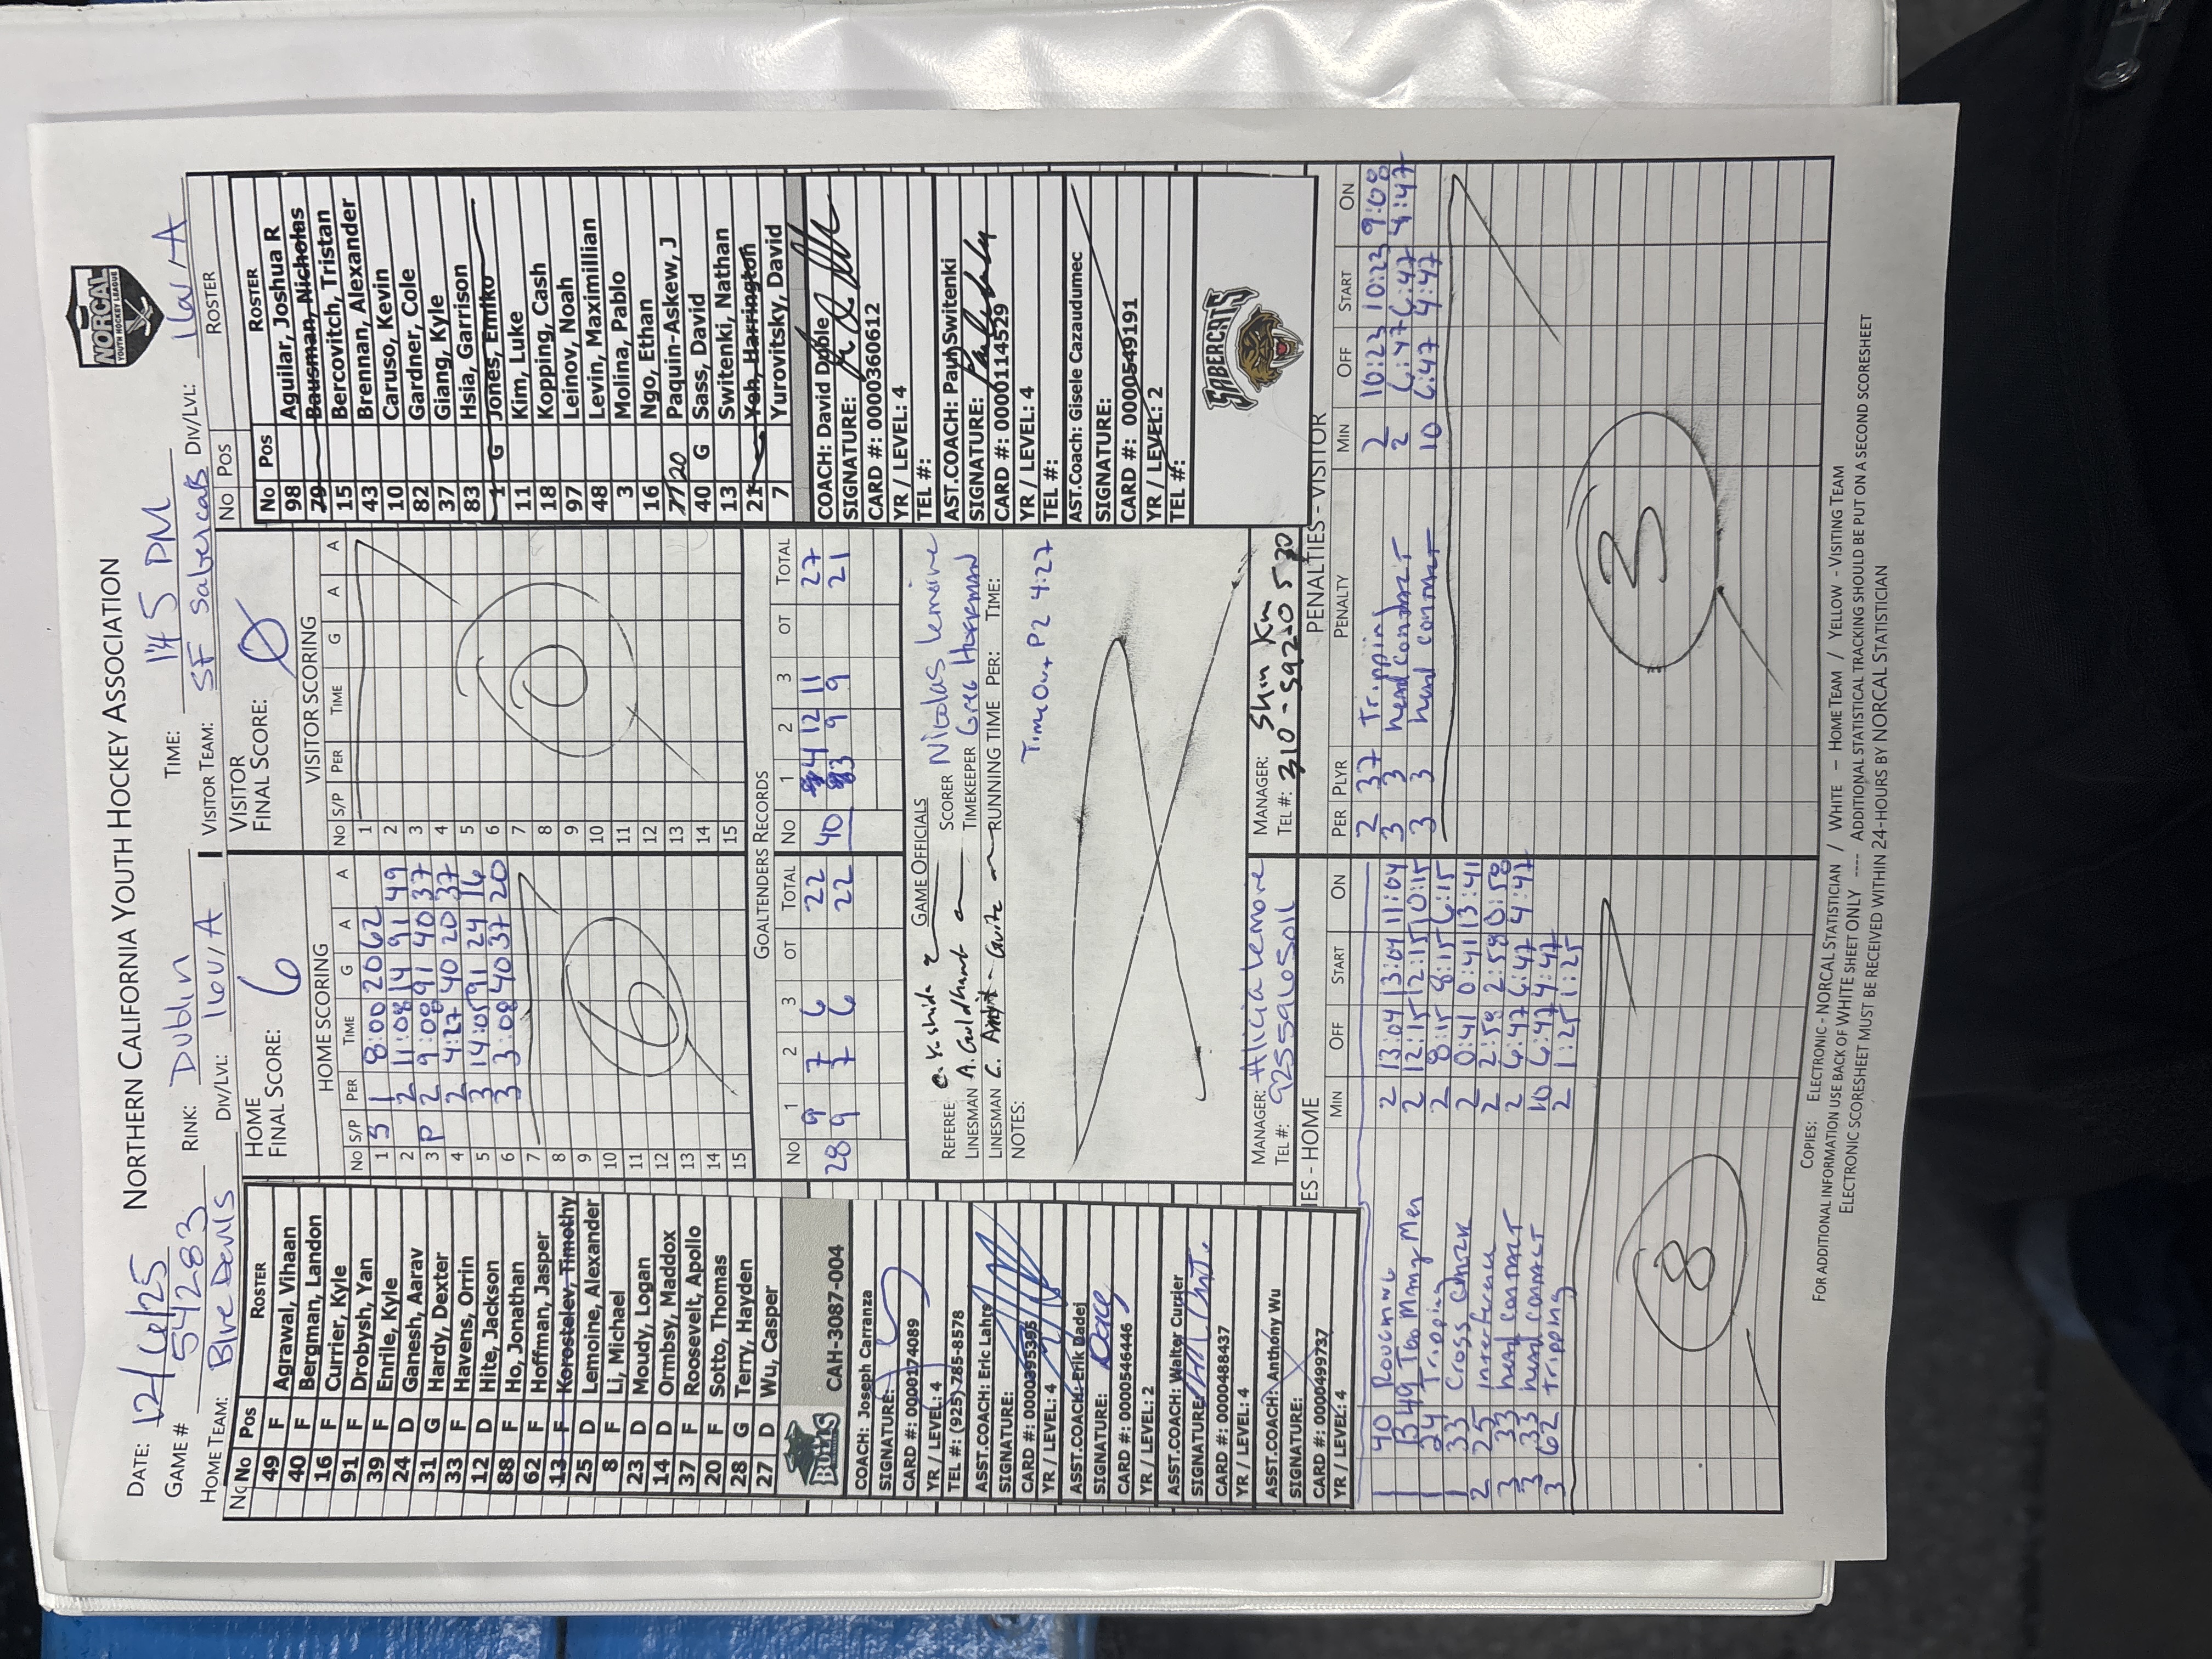 NORTHERN CALIFORNIA YOUTH HOCKEY ASSOCIATION
NORCAL
YOUTH HOCKEY LEAGUE
DATE: 12/6/25
GAME # 54283 RINK: Dublin TIME: 145 PM
HOME TEAM: Blue Devils DIV/LVL: 16U/A VISITOR TEAM: SF Sabercats DIV/LVL: 16U A
No Pos ROSTER
49 F Agrawal, Vihaan
40 F Bergman, Landon
16 F Currier, Kyle
91 F Drobysh, Yan
39 F Enrile, Kyle
24 D Ganesh, Aarav
31 G Hardy, Dexter
33 F Havens, Orrin
12 D Hite, Jackson
88 F Ho, Jonathan
62 F Hoffman, Jasper
13 F Korostelev, Timothy
25 D Lemoine, Alexander
8 F Li, Michael
23 D Moudy, Logan
14 D Ormsby, Maddox
37 F Roosevelt, Apollo
20 F Sotto, Thomas
28 G Terry, Hayden
27 D Wu, Casper
CAH-3087-004
COACH: Joseph Carranza
SIGNATURE:
CARD #: 0000174089
YR / LEVEL: 4
TEL #: (925)-785-8578
ASST.COACH: Eric Lahrs
SIGNATURE:
CARD #: 0000395395
YR / LEVEL: 4
ASST.COACH: Erik Dadej
SIGNATURE:
CARD #: 0000546446
YR / LEVEL: 2
ASST.COACH: Walter Currier
SIGNATURE:
CARD #: 0000488437
YR / LEVEL: 4
ASST.COACH: Anthony Wu
SIGNATURE:
CARD #: 0000499737
YR / LEVEL: 4
HOME
FINAL SCORE: 6
HOME SCORING
No S/P PER TIME G A A
1 S 1 8:00 20 62
2 2 11:08 14 91 49
3 P 2 9:08 91 40 37
4 2 4:27 40 20 37
5 3 14:05 91 24 16
6 3 3:08 40 37 20
7
8
9
10
11
12
13
14
15
6
VISITOR
FINAL SCORE: Ø
VISITOR SCORING
No S/P PER TIME G A A
1
2
3
4
5
6
7
8
9
10
11
12
13
14
15
0
GOALTENDERS RECORDS
No 1 2 3 OT TOTAL No 1 2 3 OT TOTAL
28 9 7 6 22 40 4 12 11 27
9 7 6 22 3 9 9 21
GAME OFFICIALS
REFEREE SCORER Nicolas Lemoine
LINESMAN TIMEKEEPER
LINESMAN RUNNING TIME PER: TIME:
NOTES:
TimeOut P2 4:27
MANAGER: Alicia Lemoine MANAGER:
TEL #: 9255965011 TEL #: 310-592-0530
No Pos ROSTER
No Pos ROSTER
98 Aguilar, Joshua R
79 Bausman, Nicholas
15 Bercovitch, Tristan
43 Brennan, Alexander
10 Caruso, Kevin
82 Gardner, Cole
37 Giang, Kyle
83 Hsia, Garrison
1 G Jones, Emiko
11 Kim, Luke
18 Kopping, Cash
97 Leinov, Noah
48 Levin, Maximillian
3 Molina, Pablo
16 Ngo, Ethan
77 20 Paquin-Askew, J
40 G Sass, David
13 Switenki, Nathan
21 Yeh, Harrington
7 Yurovitsky, David
COACH: David Doble
SIGNATURE:
CARD #: 0000360612
YR / LEVEL: 4
TEL #:
AST.COACH: Paul Switenki
SIGNATURE:
CARD #: 0000114529
YR / LEVEL: 4
TEL #:
AST.Coach: Gisele Cazaudumec
SIGNATURE:
CARD #: 0000549191
YR / LEVEL: 2
TEL #:
SABERCATS
IES - HOME
MIN OFF START ON
1 40 Roughing 2 13:04 13:04 11:04
1 49 Too Many Men 2 12:15 12:15 10:15
1 24 Tripping 2 8:15 8:15 6:15
1 33 Cross Check 2 0:41 0:41 13:41
2 25 Interference 2 2:58 2:58 0:58
3 33 head contact 2 6:47 6:47 4:47
3 33 head contact 10 6:47 4:47
3 62 Tripping 2 1:25 1:25
8
PENALTIES - VISITOR
PER PLYR PENALTY MIN OFF START ON
2 37 Tripping 2 10:23 10:23 9:08
3 3 head contact 2 6:47 6:47 4:47
3 3 head contact 10 6:47 4:47
3
COPIES: ELECTRONIC - NORCAL STATISTICIAN / WHITE - HOME TEAM / YELLOW - VISITING TEAM
FOR ADDITIONAL INFORMATION USE BACK OF WHITE SHEET ONLY ---- ADDITIONAL STATISTICAL TRACKING SHOULD BE PUT ON A SECOND SCORESHEET
ELECTRONIC SCORESHEET MUST BE RECEIVED WITHIN 24-HOURS BY NORCAL STATISTICIAN